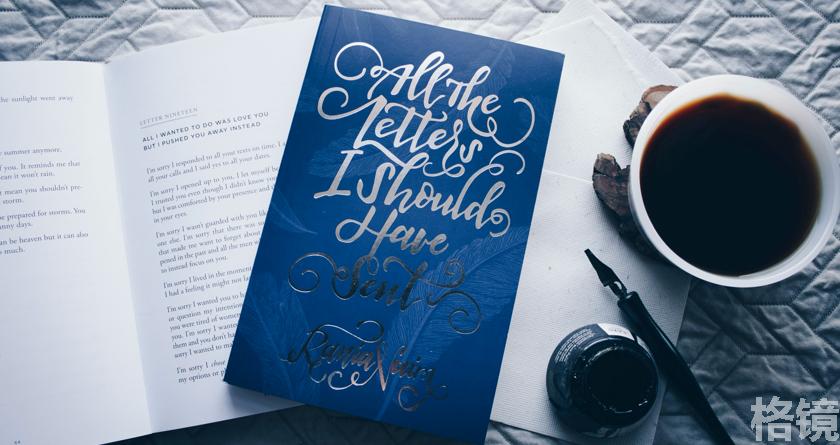 he sunlight went away
summer anymore.
f you. It reminds me that
ean it won't rain.
t mean you shouldn't pre-
storm.
be prepared for storms. You
unny days.
an be heaven but it can also
much.
64
LETTER NINETEEN
ALL I WANTED TO DO WAS LOVE YOU
BUT I PUSHED YOU AWAY INSTEAD
I'm sorry I responded to all your texts on time. I
all your calls and I said yes to all your dates.
I'm sorry I opened up to you. I let myself be
I trusted you even though I didn't know you
but I was comforted by your presence and th
in your eyes.
I'm sorry I wasn't guarded with you lik
one else. I'm sorry that there was so
that made me want to forget about
pened in the past and all the men w
to instead focus on you.
I'm sorry I lived in the momen
I had a feeling it might not las
I'm sorry I wanted you to h
or question my intention
you were tired of women
them and you don't ha
sorry I wanted to ma
I'm sorry I chos
my options or p
All the
Letters
I Should
Have
Sent
Rania Naim
格镜